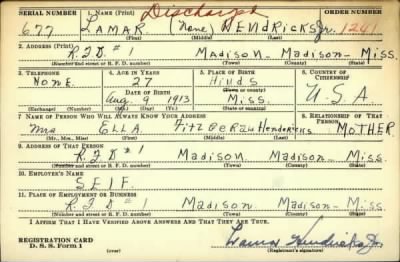 SERIAL NUMBER 1. NAME (Print) Discharged ORDER NUMBER
677 LAMAR (None) HENDRICKS Jr. 1241
(First) (Middle) (Last)
2. ADDRESS (Print)
R.F.D #1 Madison Madison Miss.
(Number and street or R. F. D. number) (Town) (County) (State)
3. TELEPHONE 4. AGE IN YEARS 5. PLACE OF BIRTH 6. COUNTRY OF CITIZENSHIP
NONE 27 Hinds
(Town or county)
DATE OF BIRTH U.S.A
Aug. 9 1913 Miss.
(Exchange) (Number) (Mo.) (Day) (Yr.) (State or country)
7. NAME OF PERSON WHO WILL ALWAYS KNOW YOUR ADDRESS 8. RELATIONSHIP OF THAT PERSON
Mrs. ELLA Fitzgerald Hendricks MOTHER
(Mr., Mrs., Miss) (First) (Middle) (Last)
9. ADDRESS OF THAT PERSON
R.F.D #1 Madison Madison Miss.
(Number and street or R. F. D. number) (Town) (County) (State)
10. EMPLOYER'S NAME
SELF
11. PLACE OF EMPLOYMENT OR BUSINESS
R.F.D #1 Madison Madison Miss
(Number and street or R. F. D. number) (Town) (County) (State)
I AFFIRM THAT I HAVE VERIFIED ABOVE ANSWERS AND THAT THEY ARE TRUE.
REGISTRATION CARD
D. S. S. Form 1 (over) Lamar Hendricks Jr.
(Registrant's signature)